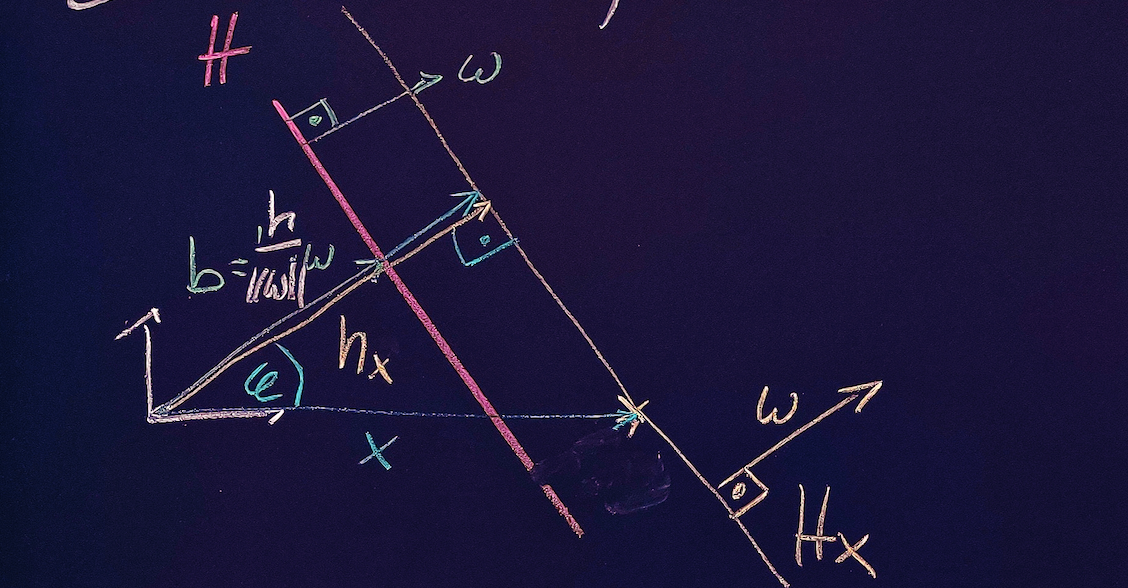 H
ω
b = h/||ω|| ω
hₓ
φ
x
ω
Hₓ